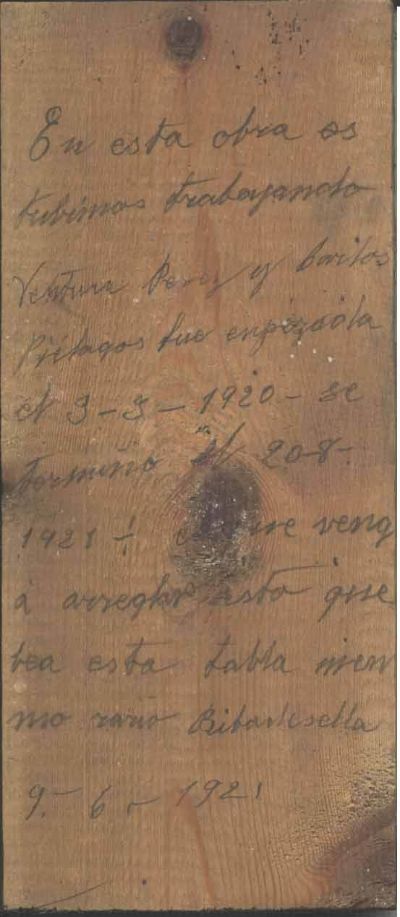 En esta obra es
tubimos trabajando
Ventura Perez y Carlos
Prelagos fue enpezada
el 3-3-1920- se
termino el 20-8-
1921 que veng
á arreglar ésto que
bea esta tabla mem
mo rario Ribadesella
9-6-1921